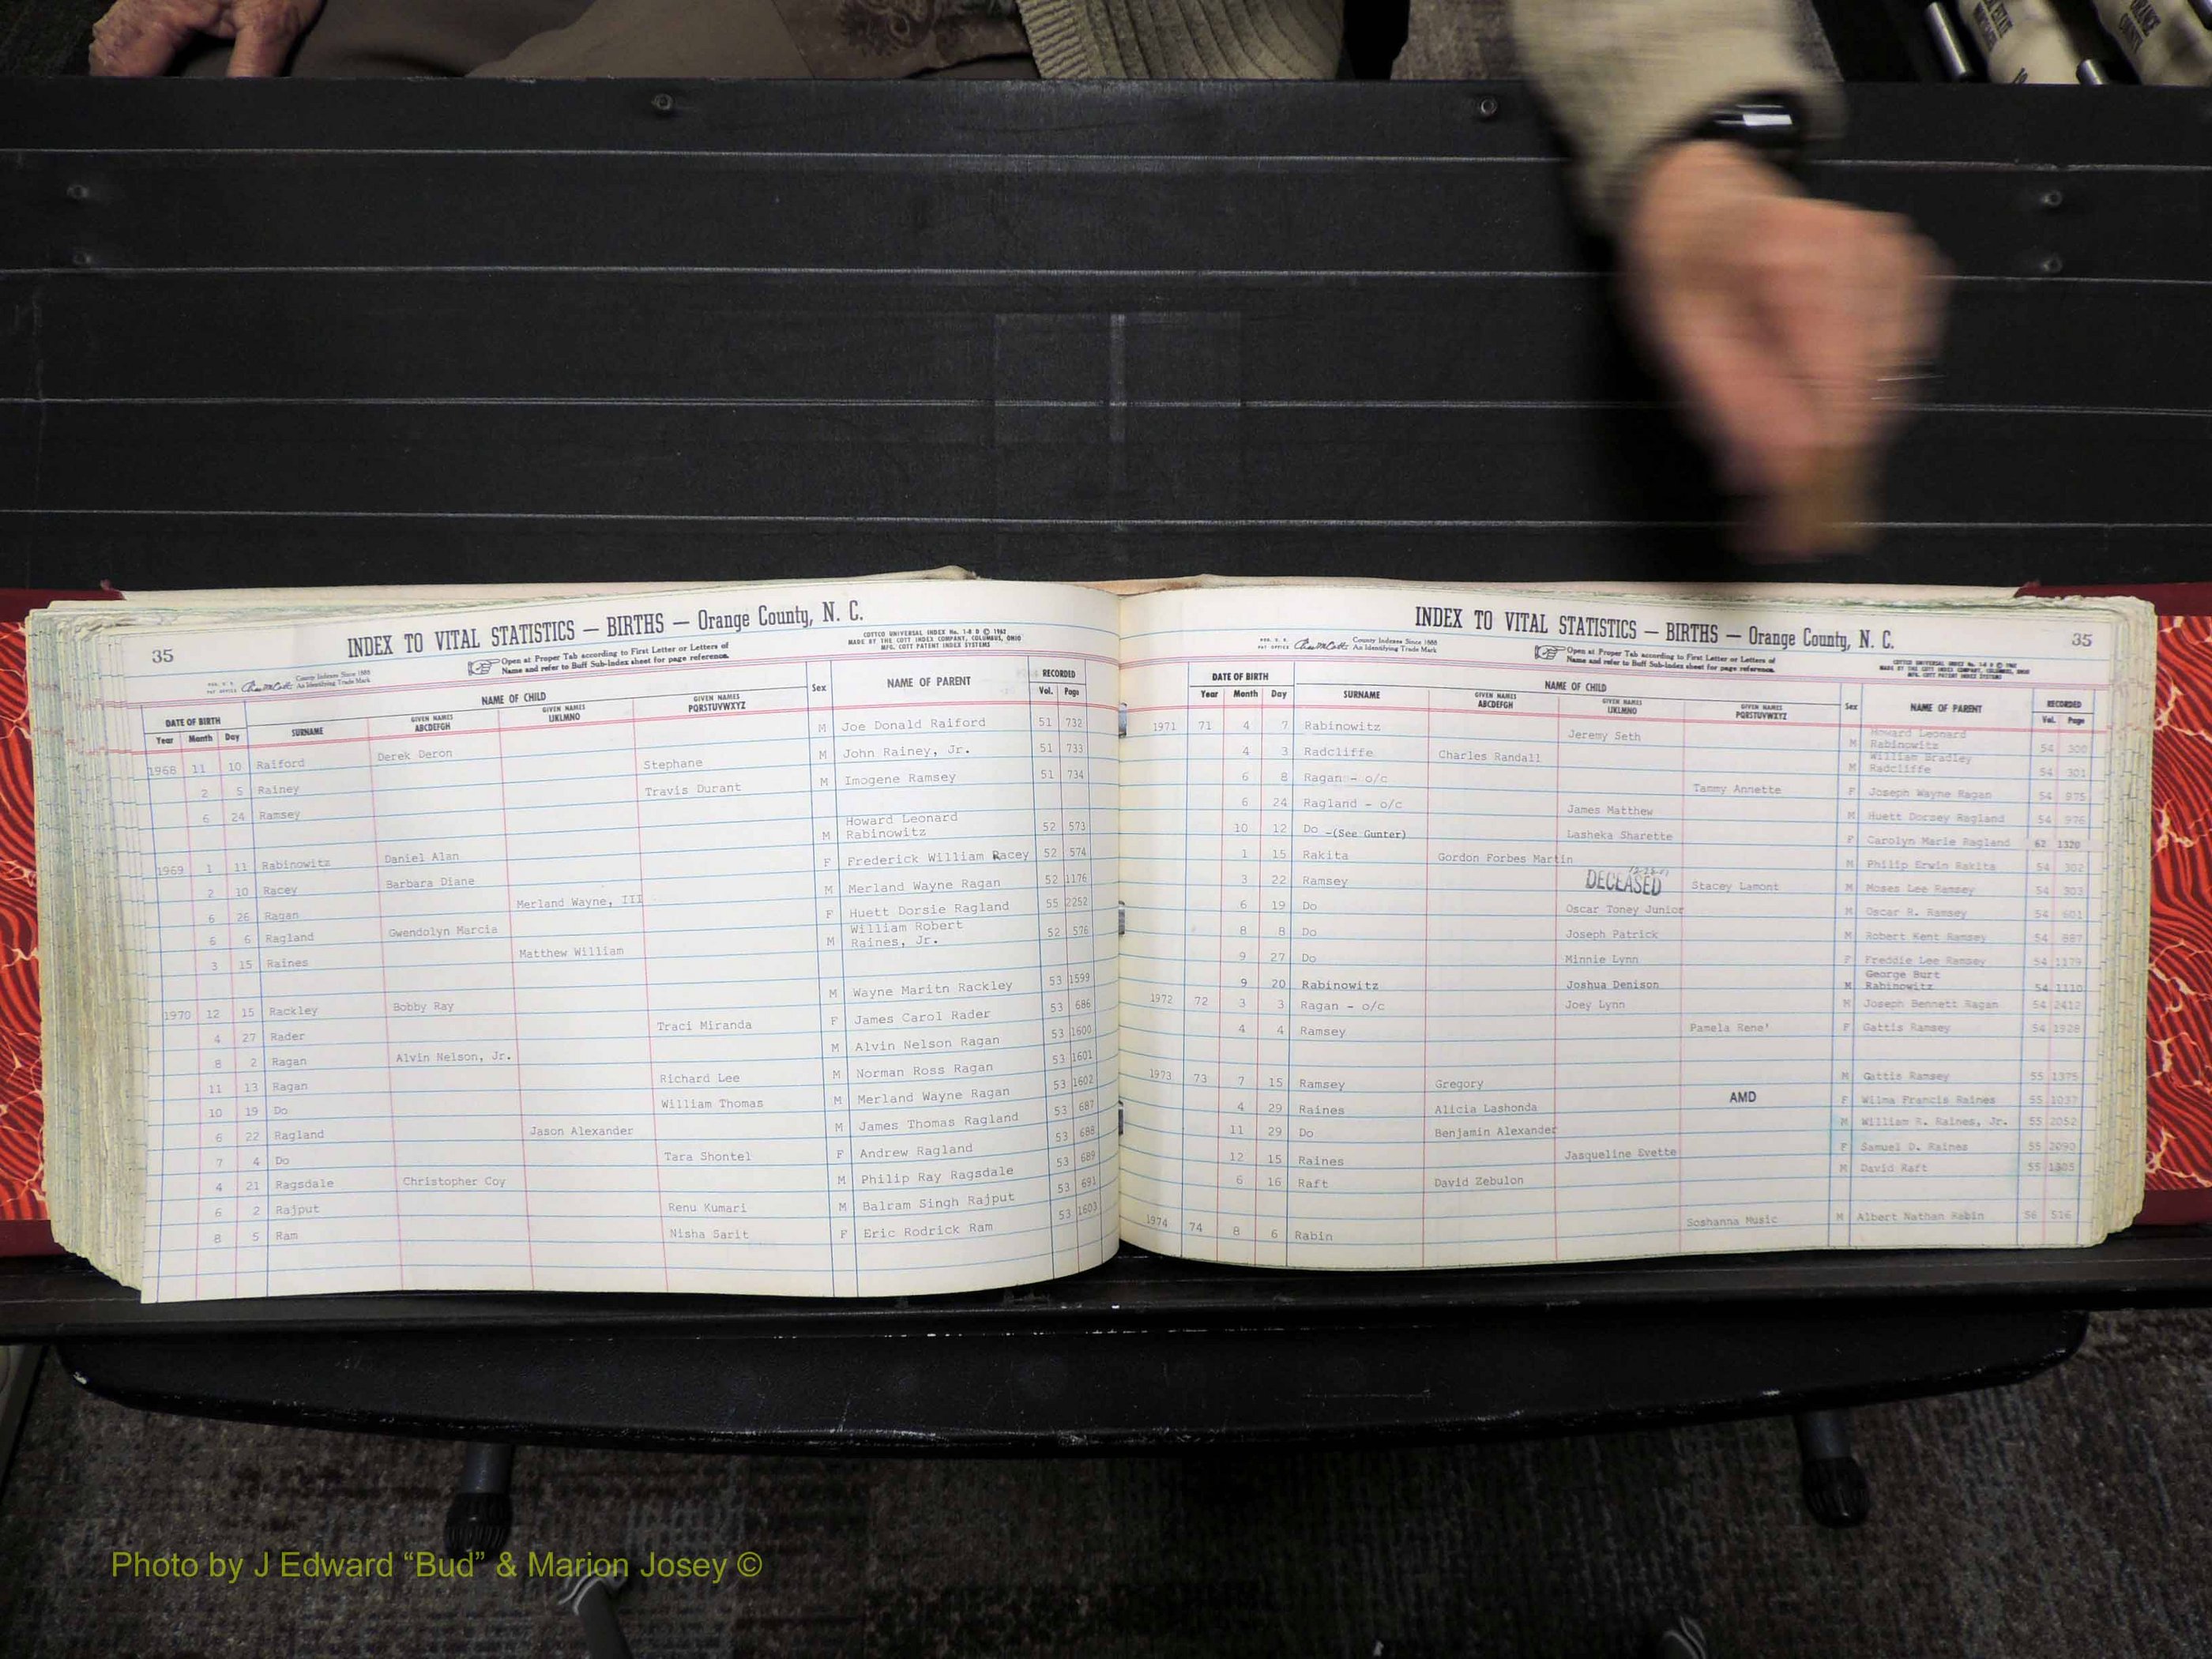 35
INDEX TO VITAL STATISTICS — BIRTHS — Orange County, N. C.
COTTCO UNIVERSAL INDEX No. 1-8 D © 1962
MADE BY THE COTT INDEX COMPANY, COLUMBUS, OHIO
MFG. COTT PATENT INDEX SYSTEMS
County Indexes Since 1888
An Identifying Trade Mark
Open at Proper Tab according to First Letter or Letters of
Name and refer to Buff Sub-Index sheet for page reference.
DATE OF BIRTH NAME OF CHILD Sex NAME OF PARENT RECORDED
Year Month Day SURNAME GIVEN NAMES ABCDEFGH GIVEN NAMES IJKLMNO GIVEN NAMES PQRSTUVWXYZ Vol. Page
1968 11 10 Raiford Derek Deron M Joe Donald Raiford 51 732
2 5 Rainey Stephane M John Rainey, Jr. 51 733
6 24 Ramsey Travis Durant M Imogene Ramsey 51 734
1969 1 11 Rabinowitz Daniel Alan M Howard Leonard Rabinowitz 52 573
2 10 Racey Barbara Diane F Frederick William Racey 52 574
6 26 Ragan Merland Wayne, III M Merland Wayne Ragan 52 1176
6 6 Ragland Gwendolyn Marcia F Huett Dorsie Ragland 55 2252
3 15 Raines Matthew William M William Robert Raines, Jr. 52 576
1970 12 15 Rackley Bobby Ray M Wayne Maritn Rackley 53 1599
4 27 Rader Traci Miranda F James Carol Rader 53 686
8 2 Ragan Alvin Nelson, Jr. M Alvin Nelson Ragan 53 1600
11 13 Ragan Richard Lee M Norman Ross Ragan 53 1601
10 19 Do William Thomas M Merland Wayne Ragan 53 1602
6 22 Ragland Jason Alexander M James Thomas Ragland 53 687
7 4 Do Tara Shontel F Andrew Ragland 53 688
4 21 Ragsdale Christopher Coy M Philip Ray Ragsdale 53 689
6 2 Rajput Renu Kumari M Balram Singh Rajput 53 691
8 5 Ram Nisha Sarit F Eric Rodrick Ram 53 1603
INDEX TO VITAL STATISTICS — BIRTHS — Orange County, N. C.
35
County Indexes Since 1888
An Identifying Trade Mark
Open at Proper Tab according to First Letter or Letters of
Name and refer to Buff Sub-Index sheet for page reference.
COTTCO UNIVERSAL INDEX No. 1-8 D © 1962
MADE BY THE COTT INDEX COMPANY, COLUMBUS, OHIO
MFG. COTT PATENT INDEX SYSTEMS
DATE OF BIRTH NAME OF CHILD Sex NAME OF PARENT RECORDED
Year Month Day SURNAME GIVEN NAMES ABCDEFGH GIVEN NAMES IJKLMNO GIVEN NAMES PQRSTUVWXYZ Vol. Page
1971 71 4 7 Rabinowitz Jeremy Seth M Howard Leonard Rabinowitz 54 300
4 3 Radcliffe Charles Randall M William Bradley Radcliffe 54 301
6 8 Ragan - o/c Tammy Annette F Joseph Wayne Ragan 54 975
6 24 Ragland - o/c James Matthew M Huett Dorsey Ragland 54 976
10 12 Do -(See Gunter) Lasheka Sharette F Carolyn Marie Ragland 62 1320
1 15 Rakita Gordon Forbes Martin M Philip Erwin Rakita 54 302
3 22 Ramsey DECEASED Stacey Lamont M Moses Lee Ramsey 54 303
6 19 Do Oscar Toney Junior M Oscar R. Ramsey 54 601
8 8 Do Joseph Patrick M Robert Kent Ramsey 54 887
9 27 Do Minnie Lynn F Freddie Lee Ramsey 54 1179
9 20 Rabinowitz Joshua Denison M George Burt Rabinowitz 54 1110
1972 72 3 3 Ragan - o/c Joey Lynn M Joseph Bennett Ragan 54 2412
4 4 Ramsey Pamela Rene' F Gattis Ramsey 54 1928
1973 73 7 15 Ramsey Gregory M Gattis Ramsey 55 1375
4 29 Raines Alicia Lashonda AMD F Wilma Francis Raines 55 1037
11 29 Do Benjamin Alexander M William R. Raines, Jr. 55 2052
12 15 Raines Jasqueline Evette F Samuel D. Raines 55 2090
6 16 Raft David Zebulon M David Raft 55 1305
1974 74 8 6 Rabin Soshanna Music M Albert Nathan Rabin 56 516
Photo by J Edward “Bud” & Marion Josey ©